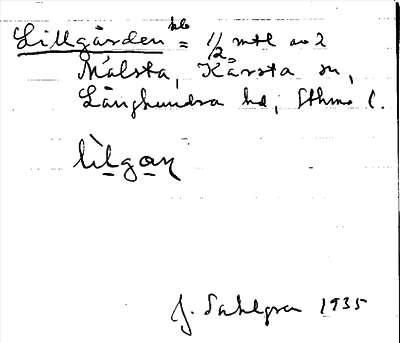 Lillgården = 1/2 mtl av 2
Målsta, Kårsta sn,
Långhundra hd, Sthms l.
lìlgaɳ
J. Sahlgren 1935